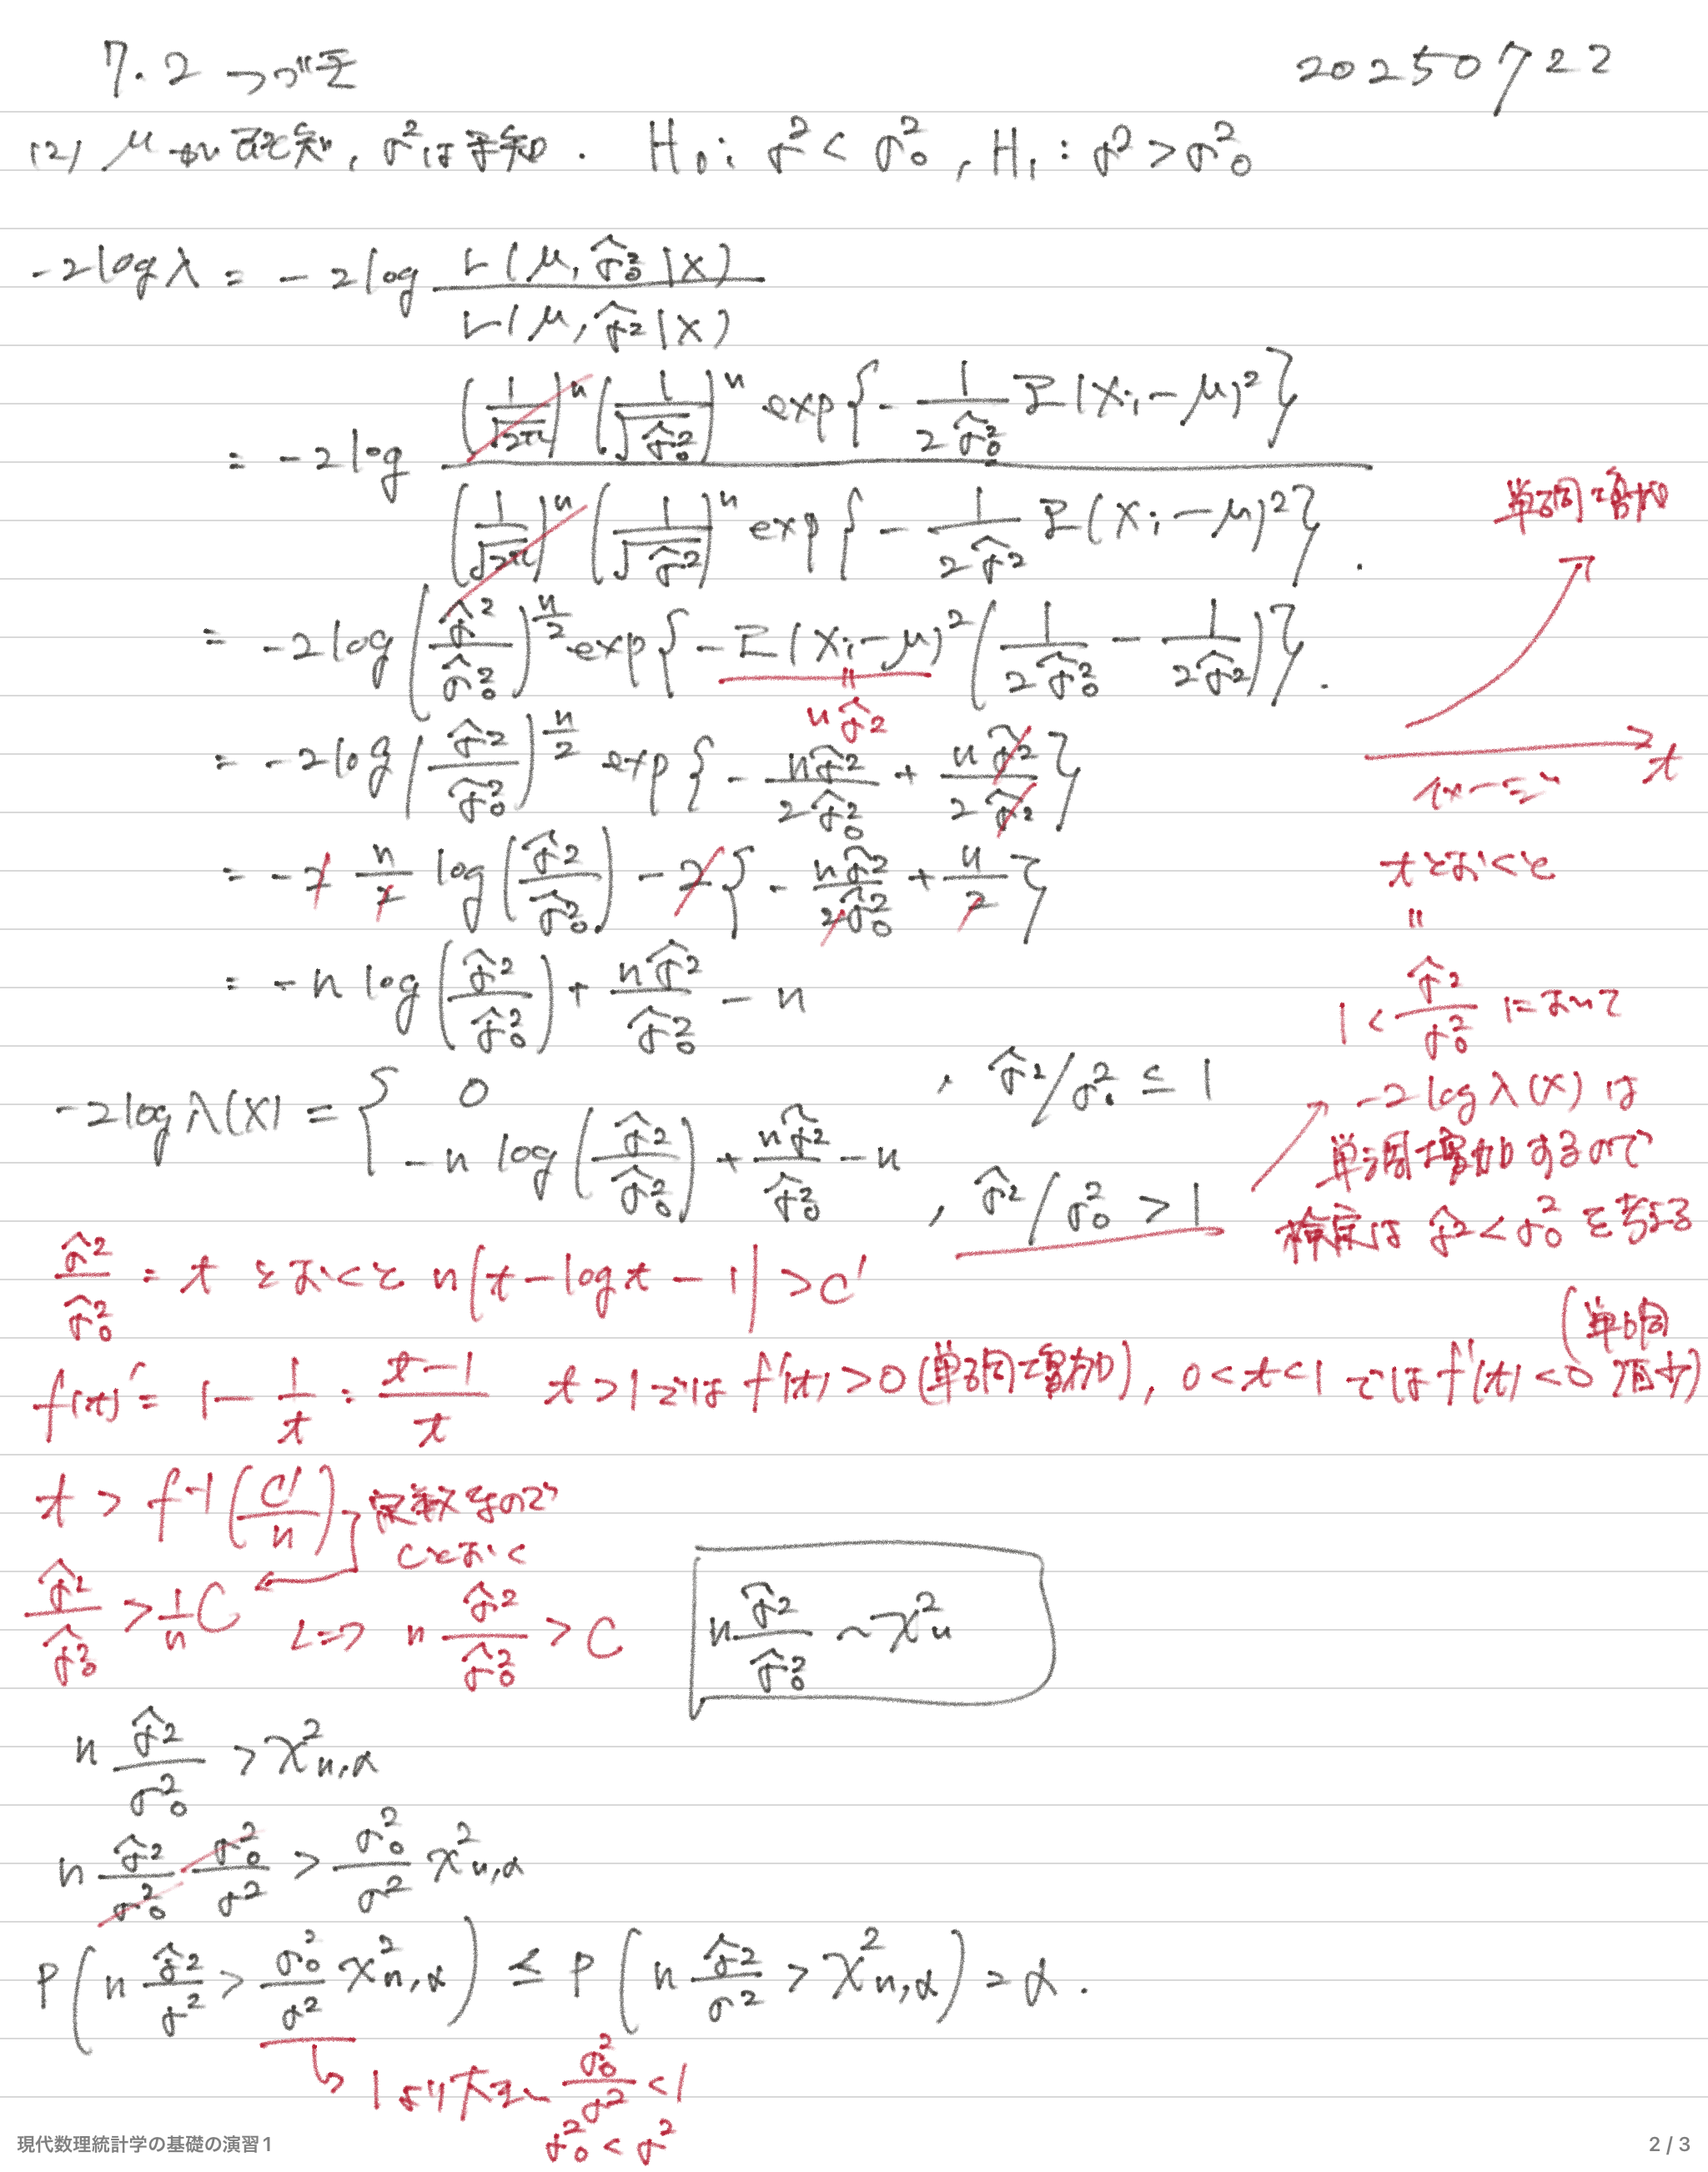 7.2 つづき 20250722
(2) μが既知, σ²は未知. H₀: σ² < σ₀², H₁: σ² > σ₀²
-2logλ = -2log L(μ, σ̂₀²|X) / L(μ, σ̂²|X)
= -2log (1/√2π)ⁿ (1/√σ̂₀²)ⁿ exp{- 1/2σ̂₀² Σ(Xi-μ)²} / (1/√2π)ⁿ (1/√σ̂²)ⁿ exp{- 1/2σ̂² Σ(Xi-μ)²}.
= -2log(σ̂²/σ̂₀²)^(n/2) exp{-Σ(Xi-μ)² (1/2σ̂₀² - 1/2σ̂²)}.
= nσ̂²
= -2log(σ̂²/σ̂₀²)^(n/2) exp{- nσ̂²/2σ̂₀² + nσ̂²/2σ̂²}
= -2 n/2 log(σ̂²/σ̂₀²) - 2{- nσ̂²/2σ̂₀² + n/2}
= -n log(σ̂²/σ̂₀²) + nσ̂²/σ̂₀² - n
単調増加
t
イメージ
tとおくと
=
1 < σ̂²/σ₀² において
-2logλ(X) は
単調増加するので
検定は σ̂² < σ₀² を考える
-2logλ(X) = { 0 , σ̂²/σ₀² ≤ 1
-n log(σ̂²/σ̂₀²) + nσ̂²/σ̂₀² - n , σ̂²/σ₀² > 1
σ̂²/σ̂₀² = t とおくと n(t - log t - 1) > C'
f(t)' = 1 - 1/t = (t-1)/t t>1では f'(t)>0 (単調増加), 0<t<1 では f'(t)<0 (単調減少)
t > f⁻¹(C'/n) 定数なので
Cとおく
σ̂²/σ̂₀² > 1/n C ⟺ n σ̂²/σ̂₀² > C
n σ̂²/σ̂₀² ~ χ²n
n σ̂²/σ₀² > χ²n,α
n σ̂²/σ₀² σ₀²/σ² > σ₀²/σ² χ²n,α
P(n σ̂²/σ² > σ₀²/σ² χ²n,α) ≤ P(n σ̂²/σ² > χ²n,α) = α.
1より大きい σ₀²/σ² < 1
σ₀² < σ²
現代数理統計学の基礎の演習1 2 / 3